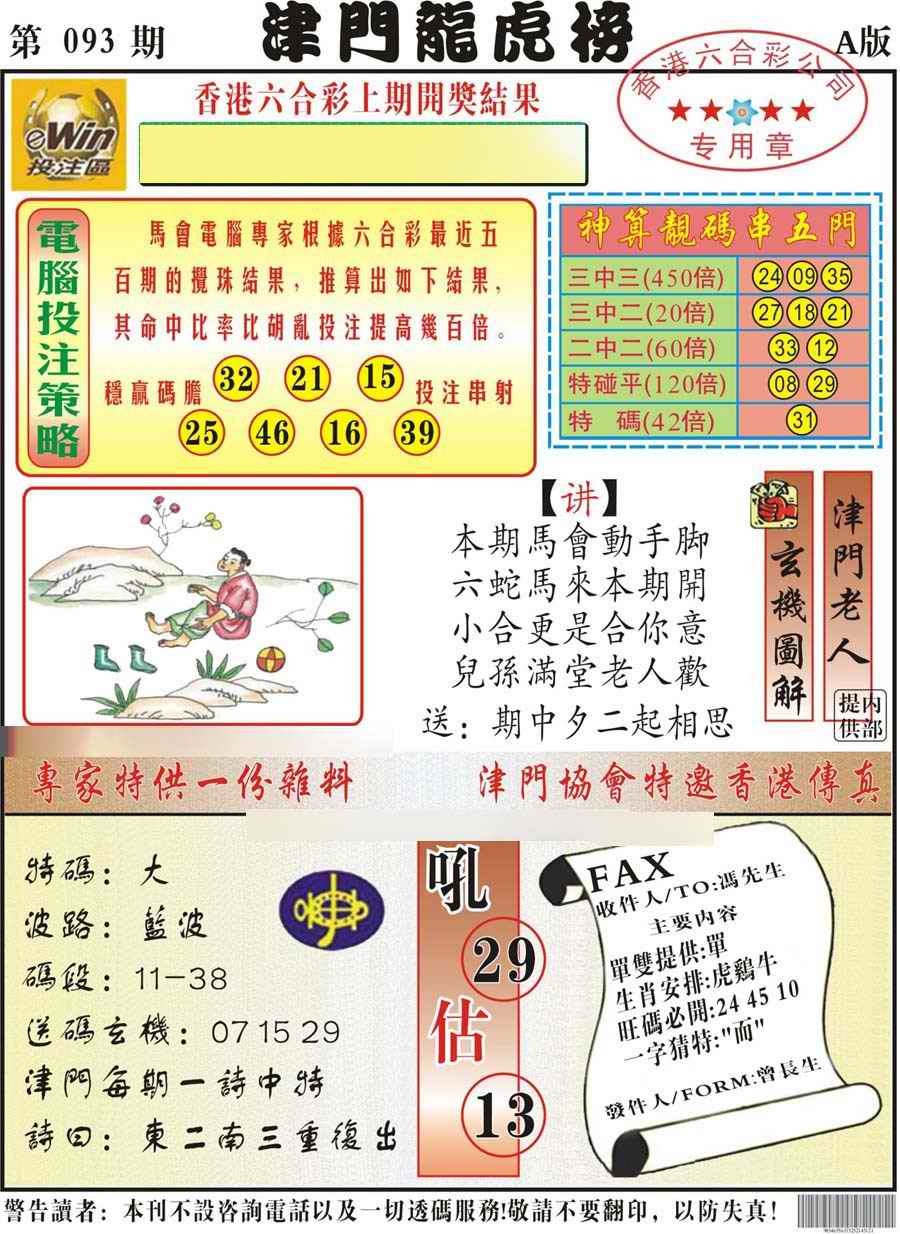 第 093 期
津門龍虎榜
A版
香港六合彩公司
专用章
eWin
投注區
香港六合彩上期開獎結果
電腦投注策略
馬會電腦專家根據六合彩最近五
百期的攪珠結果，推算出如下結果，
其命中比率比胡亂投注提高幾百倍。
穩贏碼膽 32 21 15 投注串射
25 46 16 39
神算靚碼串五門
三中三(450倍) 24 09 35
三中二(20倍) 27 18 21
二中二(60倍) 33 12
特碰平(120倍) 08 29
特 碼(42倍) 31
【讲】
本期馬會動手脚
六蛇馬來本期開
小合更是合你意
兒孫滿堂老人歡
送：期中夕二起相思
玄機圖解
津門老人
内部提供
專家特供一份雜料
津門協會特邀香港傳真
特碼：大
波路：藍波
碼段：11-38
送碼玄機：07 15 29
津門每期一詩中特
詩曰：東二南三重復出
吼
29
估
13
FAX
收件人/TO:馮先生
主要内容
單雙提供:單
生肖安排:虎鷄牛
旺碼必開:24 45 10
一字猜特:"而"
發件人/FORM:曾長生
警告讀者：本刊不設咨詢電話以及一切透碼服務!敬請不要翻印，以防失真!